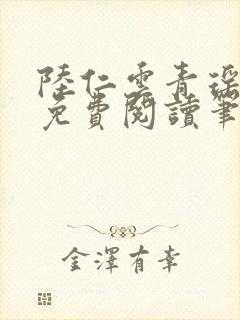 陸仁雲青瑤
免費閱讀筆
金澤有幸